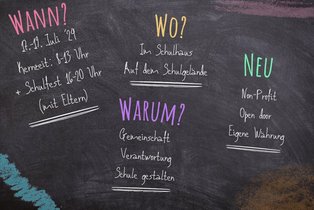 WANN?
17.-19. Juli '29
Kernzeit: 8-13 Uhr
+ Schulfest 16-20 Uhr
(mit Eltern)
WO?
Im Schulhaus
Auf dem Schulgelände
WARUM?
Gemeinschaft
Verantwortung
Schule gestalten
NEU
Non-Profit
Open door
Eigene Währung